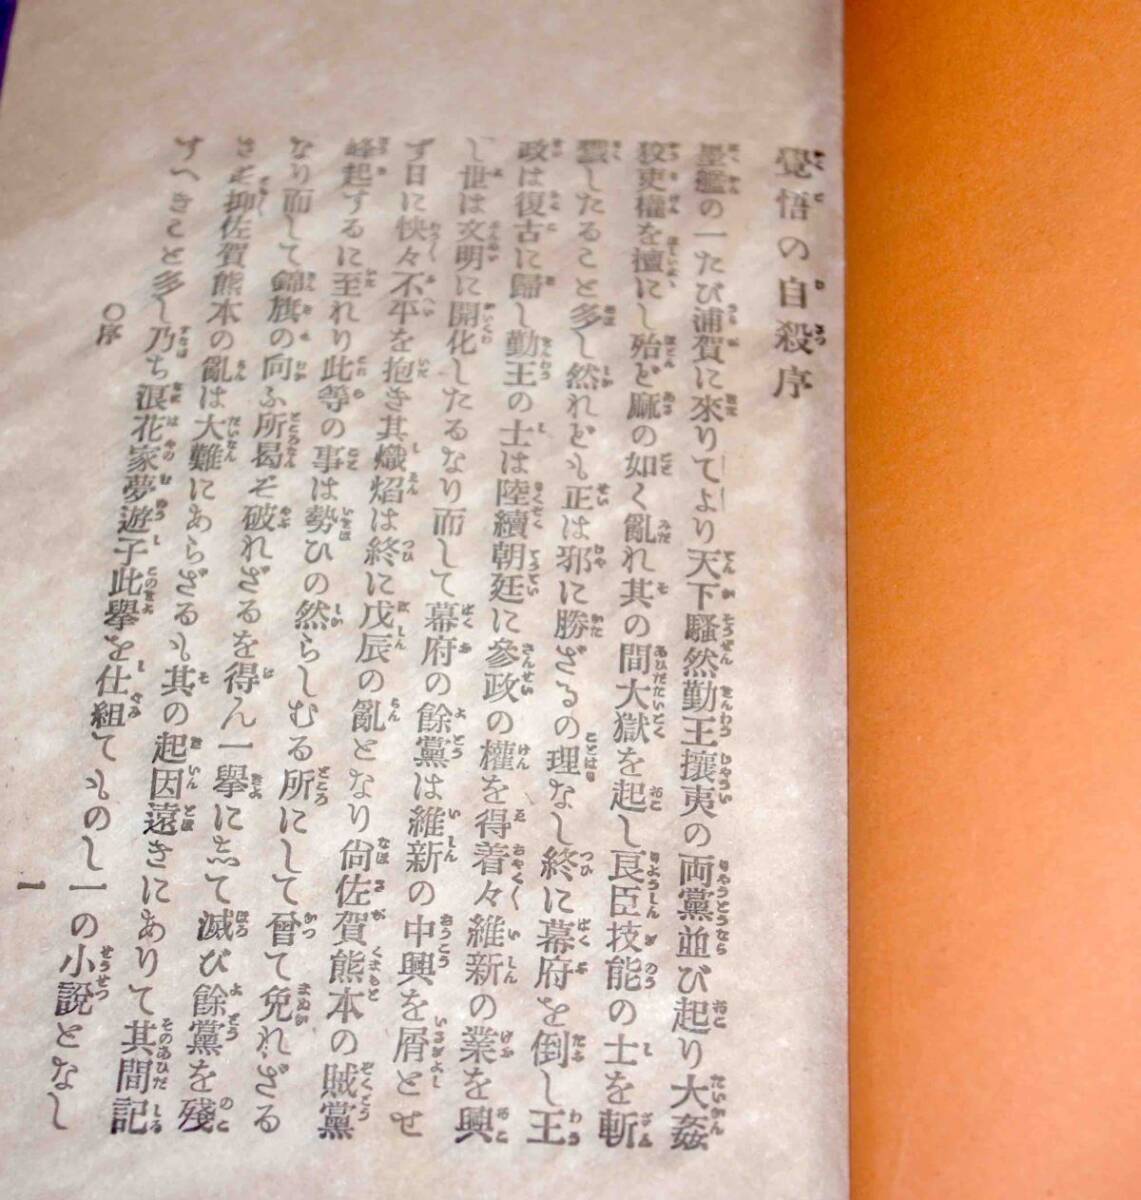 覺悟の自殺序
墨艦の一たび浦賀に來りてより天下騷然勤王攘夷の両黨並び起り大姦
狡吏權を擅にし殆ど麻の如く亂れ其の間大獄を起し良臣技能の士を斬
戮したること多し然れども正は邪に勝ざるの理なし終に幕府を倒し王
政は復古に歸し勤王の士は陸續朝廷に參政の權を得着々維新の業を興
し世は文明に開化したるなり而して幕府の餘黨は維新の中興を屑とせ
ず日に怏々不平を抱き其熾焰は終に戊辰の亂となり尙佐賀熊本の賊黨
峰起するに至れり此等の事は勢ひの然らしむる所にして曾て免れざる
なり而して錦旗の向ふ所曷ぞ破れざるを得ん一擧に志て滅び餘黨を殘
さず抑佐賀熊本の亂は大難にあらざるも其の起因遠きにありて其間記
すべきこと多し乃ち浪花家夢遊子此擧を仕組てものし一の小說となし
〇序
一